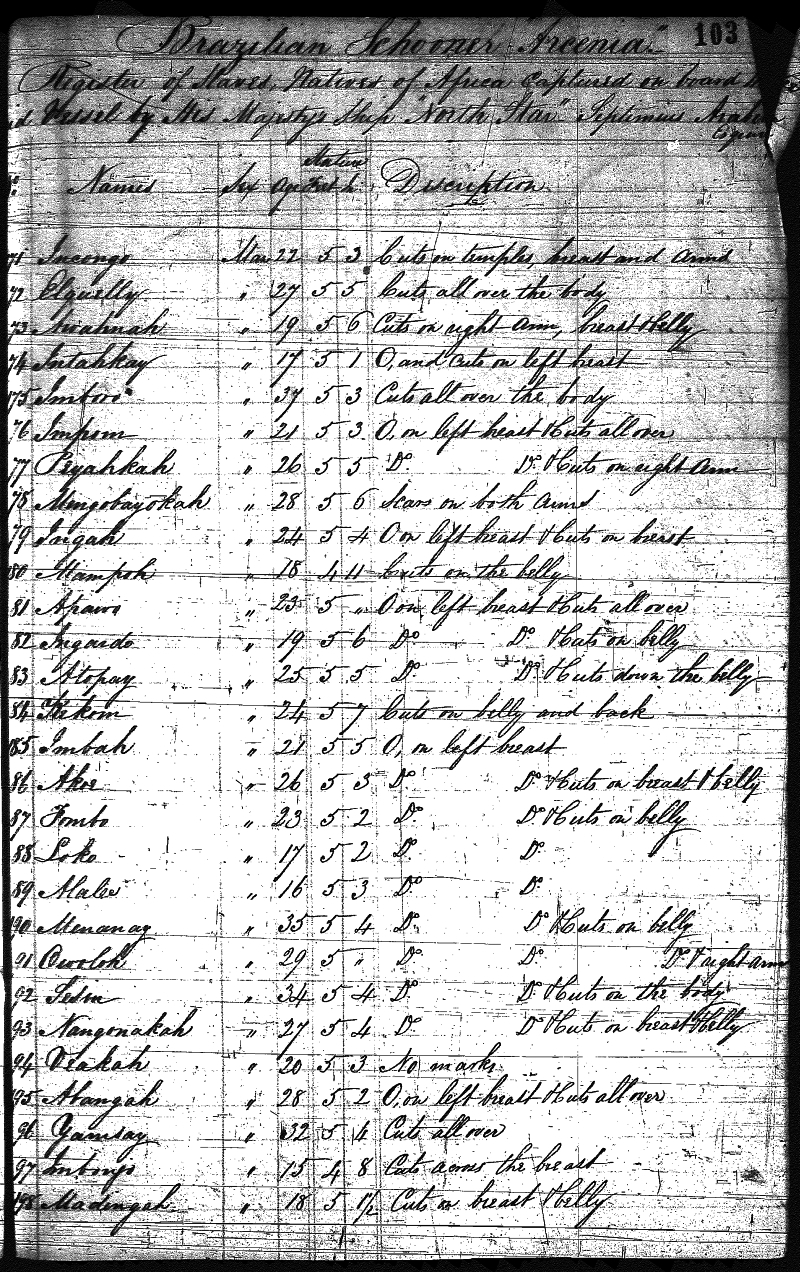 103
Brazilian Schooner "Arcenia"
Register of Slaves, Natives of Africa Captured on board
Vessel by His Majesty's Ship "North Star" Septimius Arabin
Esquire
Names Sex Age Stature Feet In Description
71 Incongo Man 22 5 3 Cuts on temples, breast and arms
72 Elguelly " 27 5 5 Cuts all over the body
73 Awahnah " 19 5 6 Cuts on right arm, breast & belly
74 Intahkay " 17 5 1 O, and cuts on left breast
75 Imboro " 37 5 3 Cuts all over the body
76 Impom " 21 5 3 O, on left breast & cuts all over
77 Peyahkah " 26 5 5 Do. Do. & cuts on right arm
78 Mingobayokah " 28 5 6 Scars on both arms
79 Ingah " 24 5 4 O on left breast & cuts on breast
80 Mampoh " 18 4 11 Cuts on the belly
81 Apawo " 23 5 " O on left breast & cuts all over
82 Ingardo " 19 5 6 Do Do & cuts on belly
83 Atopay " 25 5 5 Do. Do & cuts down the belly
84 Kekom " 24 5 7 Cuts on belly and back
85 Imbah " 21 5 5 O, on left breast
86 Akoe " 26 5 3 Do Do & cuts on breast & belly
87 Fombo " 23 5 2 Do. Do & cuts on belly
88 Loko " 17 5 2 Do. Do.
89 Malee " 16 5 3 Do Do.
90 Menanag " 35 5 4 Do. Do & cuts on belly
91 Owoloh " 29 5 " Do. Do. Do & right arm
92 Sesin " 34 5 4 Do. Do & cuts on the body
93 Nangonakah " 27 5 4 Do. Do & cuts on breast & belly
94 Veakah " 20 5 3 No marks
95 Abangah " 28 5 2 O, on left breast & cuts all over
96 Yamsay " 32 5 4 Cuts all over
97 Imbongo " 15 4 8 Cuts across the breast
198 Madingah " 18 5 1½ Cuts on breast & belly